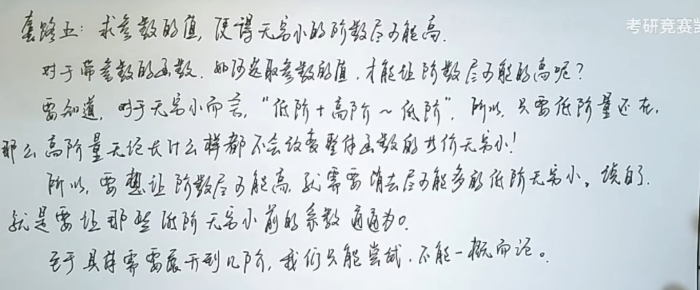 考研竞赛
套路五：求参数的值，使得无穷小的阶数尽可能高.
对于带参数的函数，如何选取参数的值，才能让阶数尽可能的高呢？
要知道，对于无穷小而言，“低阶+高阶~低阶”，所以，只要低阶量还在，
那么高阶量无论长什么样都不会改变整体函数的等价无穷小！
所以，要想让阶数尽可能高，就需要消去尽可能多的低阶无穷小。说白了，
就是要让那些低阶无穷小前的系数通通为0.
至于具体需要展开到几阶，我们只能尝试，不能一概而论。